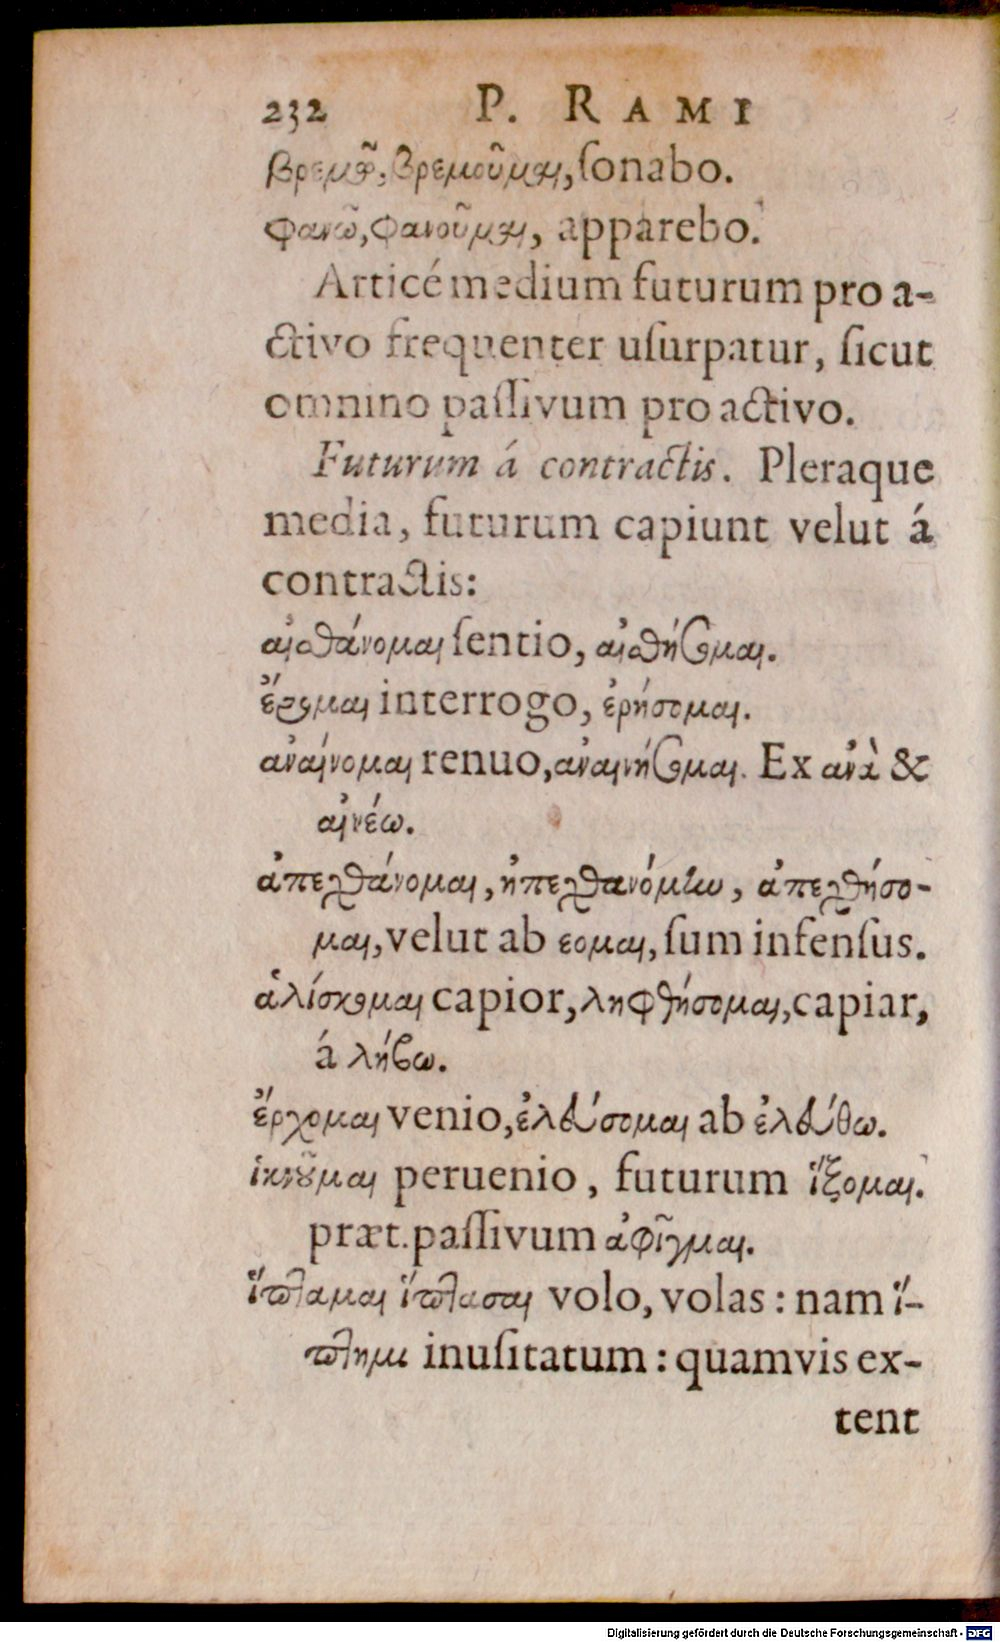 232 P. RAMI
βρεμῶ, βρεμοῦμαι, ſonabo.
φανῶ, φανοῦμαι, apparebo.
Atticé medium futurum pro a-
ctivo frequenter uſurpatur, ſicut
omnino paſſivum pro activo.
Futurum á contractis. Pleraque
media, futurum capiunt velut á
contractis:
αἰσθάνομαι ſentio, αἰσθήσομαι.
ἔρομαι interrogo, ἐρήσομαι.
ἀναίνομαι renuo, ἀναινήσομαι. Ex ἀνὰ &
αἰνέω.
ἀπεχθάνομαι, ἠπεχθανόμην, ἀπεχθήσο-
μαι, velut ab εομαι, ſum infenſus.
ἁλίσκομαι capior, ληφθήσομαι, capiar,
á λήβω.
ἔρχομαι venio, ἐλεύσομαι ab ἐλεύθω.
ἱκνοῦμαι peruenio, futurum ἵξομαι.
præt. paſſivum ἀφῖγμαι.
ἵπταμαι ἵπτασαι volo, volas: nam ἵ-
πτημι inuſitatum: quamvis ex-
tent
Digitalisierung gefördert durch die Deutsche Forschungsgemeinschaft - DFG